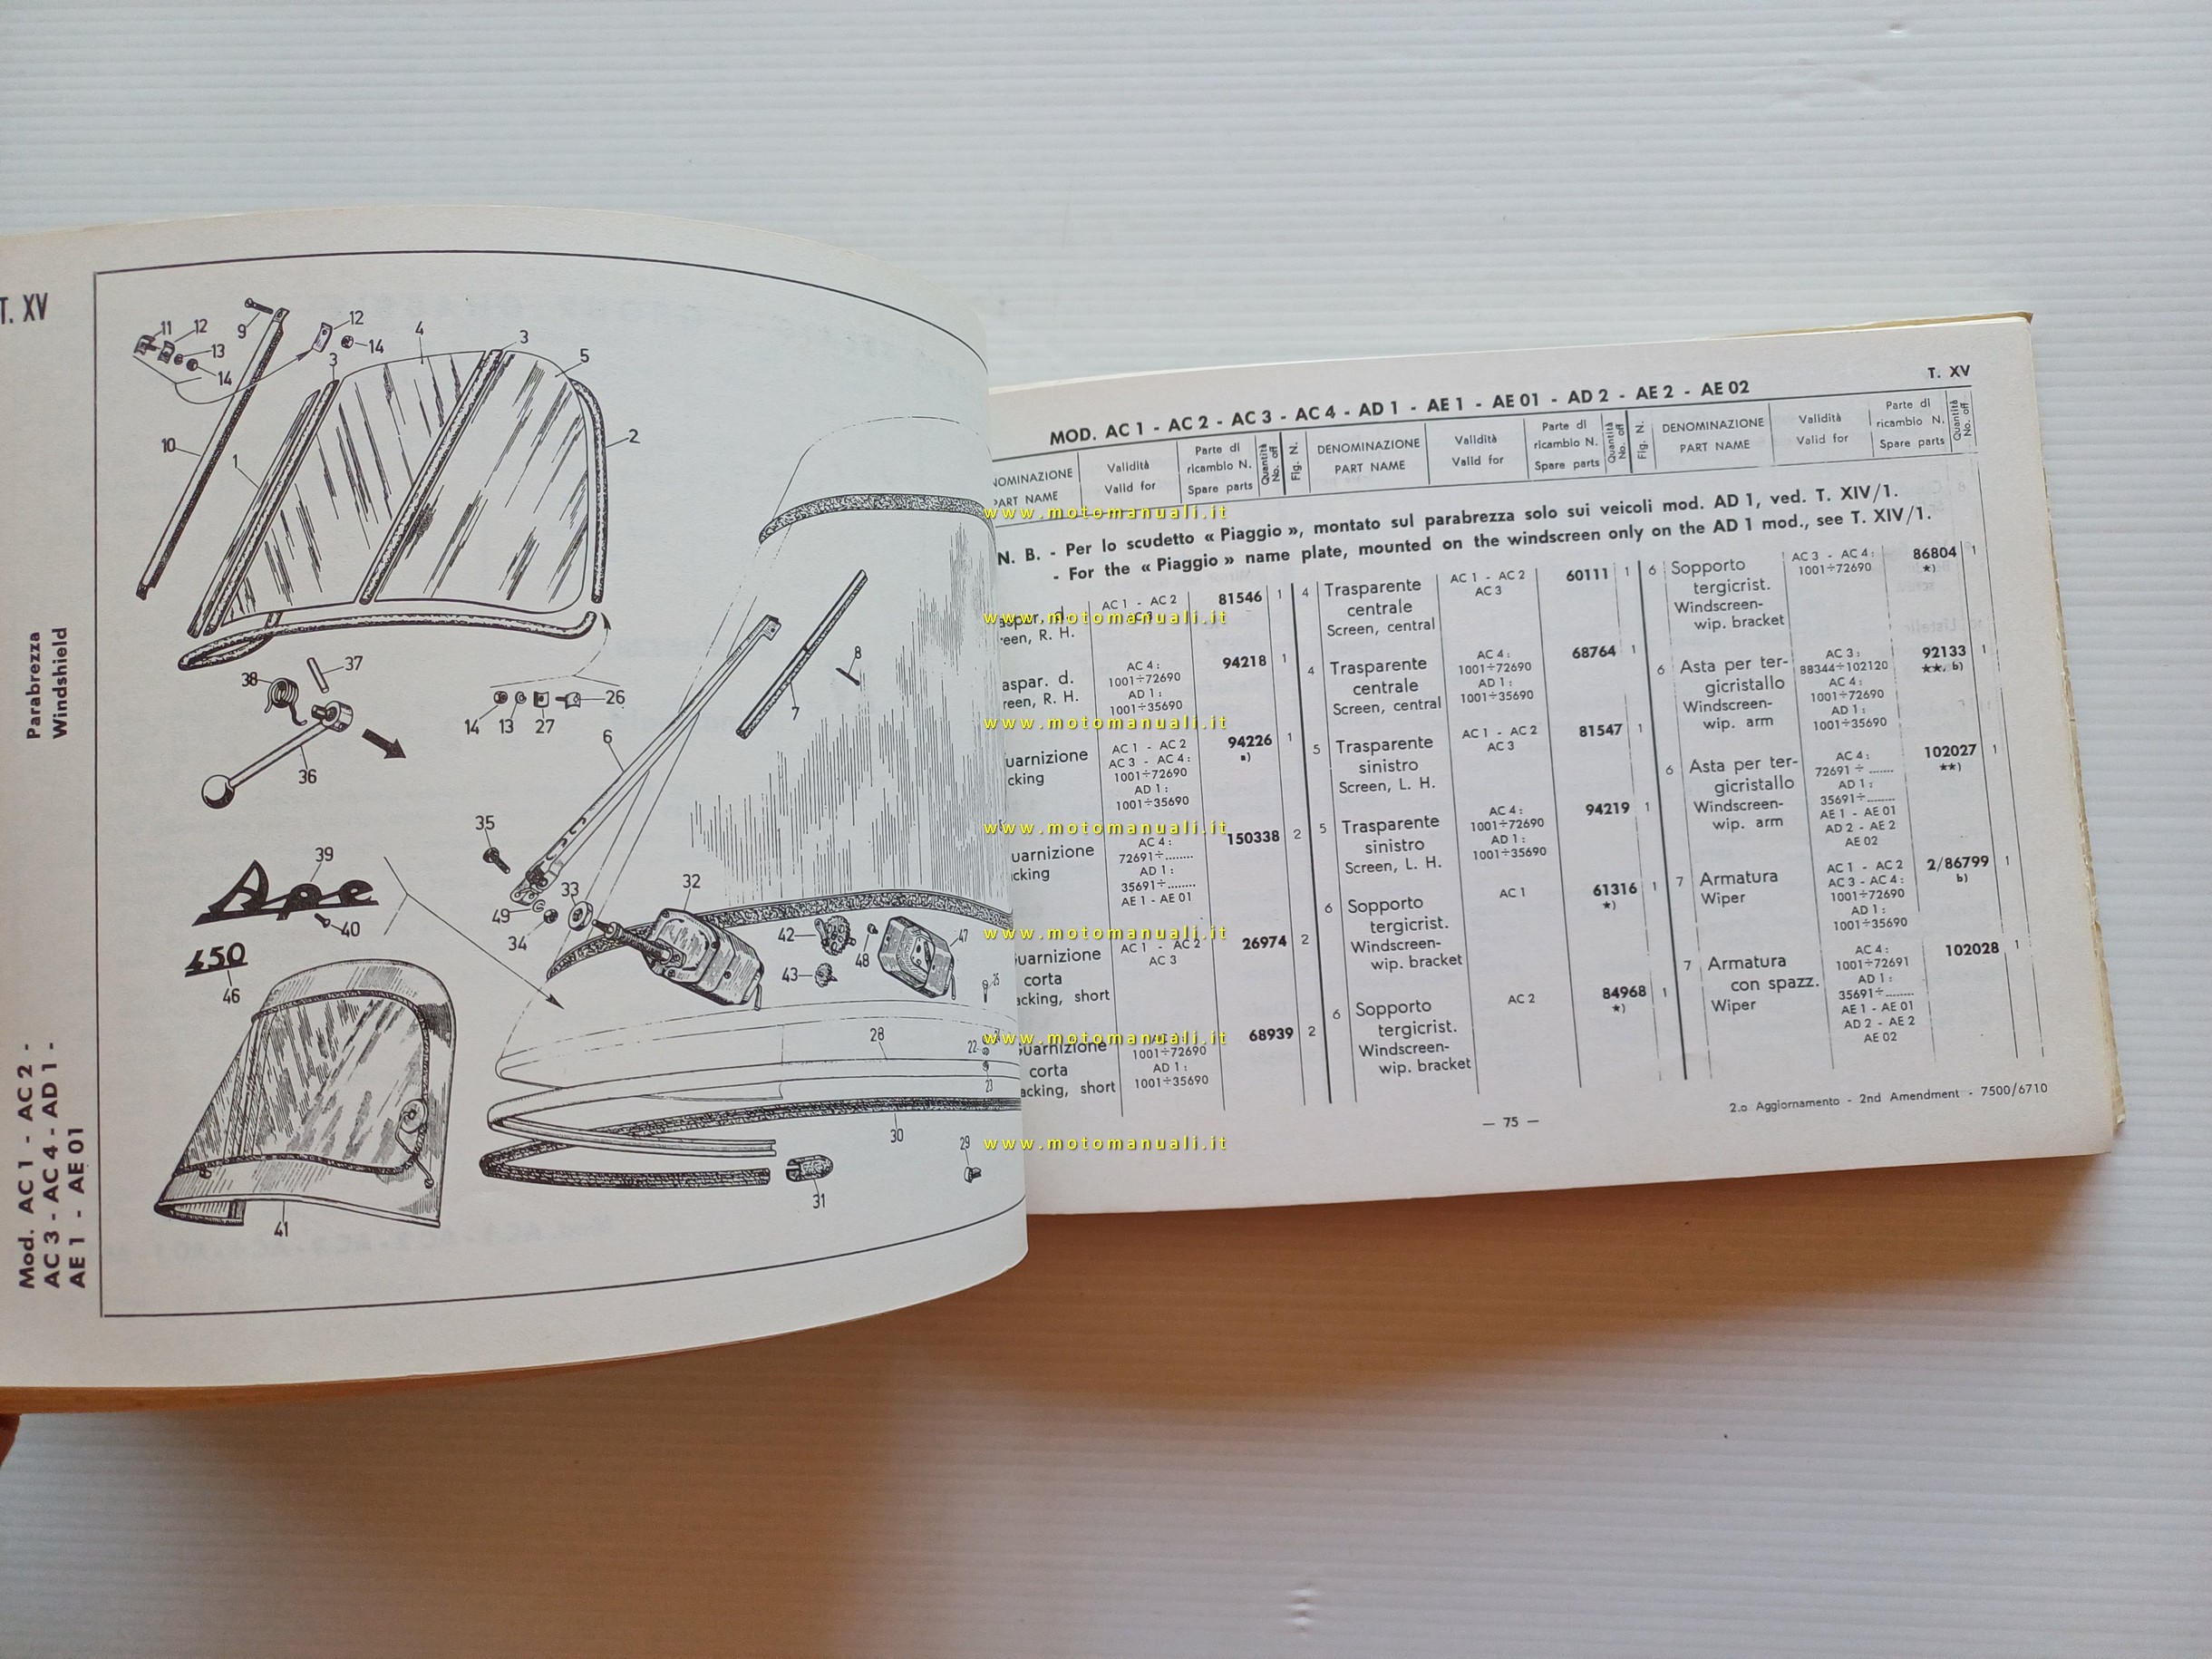 T. XV
Parabrezza
Windshield
Mod. AC 1 - AC 2 -
AC 3 - AC 4 - AD 1 -
AE 1 - AE 01
11
12
13
14
9
12
14
3
4
3
5
10
1
2
37
38
36
14
13
27
26
6
7
8
35
39
40
450
46
Ape
49
34
33
32
42
43
48
47
25
28
22
23
30
29
31
41
T. XV
MOD. AC 1 - AC 2 - AC 3 - AC 4 - AD 1 - AE 1 - AE 01 - AD 2 - AE 2 - AE 02
PART NAME
Validità
Valid for
Parte di
ricambio N.
Spare parts
Quantità
No. off
Fig. N.
DENOMINAZIONE
PART NAME
Validità
Valid for
Parte di
ricambio N.
Spare parts
Quantità
No. off
Fig. N.
DENOMINAZIONE
PART NAME
Validità
Valid for
Parte di
ricambio N.
Spare parts
Quantità
No. off
N. B. - Per lo scudetto « Piaggio », montato sul parabrezza solo sui veicoli mod. AD 1, ved. T. XIV/1.
- For the « Piaggio » name plate, mounted on the windscreen only on the AD 1 mod., see T. XIV/1.
AC 1 - AC 2
81546 1
R. H.
aspar. d.
reen, R. H.
AC 4:
1001÷72690
AD 1:
1001÷35690
94218 1
uarnizione
cking
AC 1 - AC 2
AC 3 - AC 4:
1001÷72690
AD 1:
1001÷35690
94226 1
■)
uarnizione
cking
AC 4:
72691÷........
AD 1:
35691÷........
AE 1 - AE 01
150338 2
uarnizione
corta
acking, short
AC 1 - AC 2
AC 3
26974 2
uarnizione
corta
acking, short
1001÷72690
AD 1:
1001÷35690
68939 2
4 Trasparente
centrale
Screen, central
AC 1 - AC 2
AC 3
60111 1
4 Trasparente
centrale
Screen, central
AC 4:
1001÷72690
AD 1:
1001÷35690
68764 1
5 Trasparente
sinistro
Screen, L. H.
AC 1 - AC 2
AC 3
81547 1
5 Trasparente
sinistro
Screen, L. H.
AC 4:
1001÷72690
AD 1:
1001÷35690
94219 1
6 Sopporto
tergicrist.
Windscreen-
wip. bracket
AC 1
61316 1
★)
6 Sopporto
tergicrist.
Windscreen-
wip. bracket
AC 2
84968 1
★)
6 Sopporto
tergicrist.
Windscreen-
wip. bracket
AC 3 - AC 4:
1001÷72690
86804 1
★)
6 Asta per ter-
gicristallo
Windscreen-
wip. arm
AC 3:
88344÷102120
AC 4:
1001÷72690
AD 1:
1001÷35690
92133 1
★★, b)
6 Asta per ter-
gicristallo
Windscreen-
wip. arm
AC 4:
72691 ÷ .......
AD 1:
35691÷........
AE 1 - AE 01
AD 2 - AE 2
AE 02
102027 1
★★)
7 Armatura
Wiper
AC 1 - AC 2
AC 3 - AC 4:
1001÷72690
AD 1:
1001÷35690
2/86799 1
b)
7 Armatura
con spazz.
Wiper
AC 4:
1001÷72691
AD 1:
35691÷........
AE 1 - AE 01
AD 2 - AE 2
AE 02
102028 1
— 75 —
2.o Aggiornamento - 2nd Amendment - 7500/6710
www.motomanuali.it
www.motomanuali.it
www.motomanuali.it
www.motomanuali.it
www.motomanuali.it
www.motomanuali.it
www.motomanuali.it